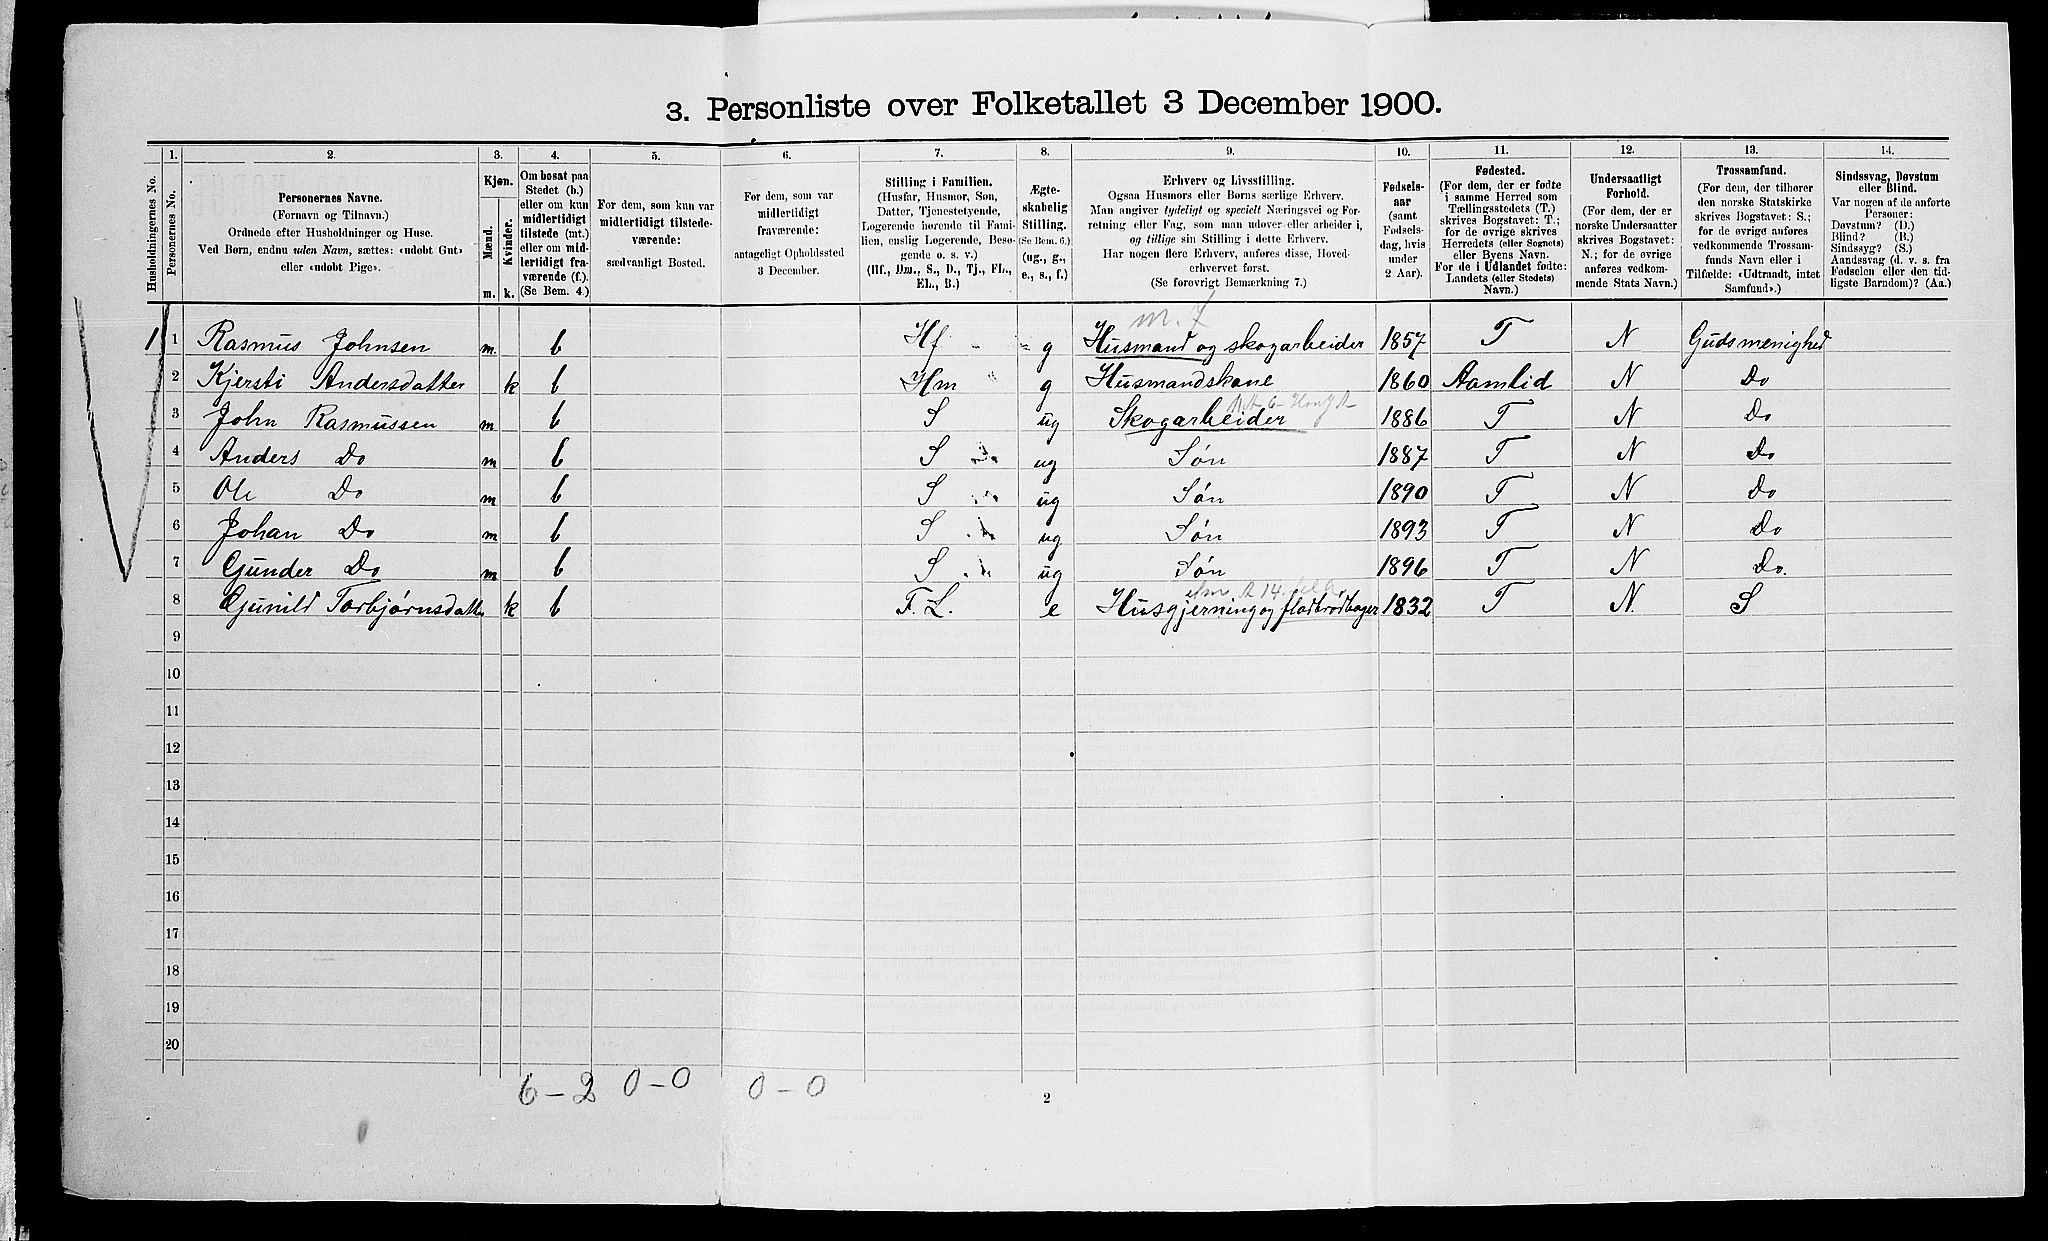 3. Personliste over Folketallet 3 December 1900.
Husholdningernes No.
1.
Personernes No.
2.
Personernes Navne.
(Fornavn og Tilnavn.)
Ordnede efter Husholdninger og Huse.
Ved Børn, endnu uden Navn, sættes: «udøbt Gut»
eller «udøbt Pige».
3.
Kjøn.
Mænd.
Kvinder.
m.
k.
4.
Om bosat paa
Stedet (b.)
eller om kun
midlertidigt
tilstede (mt.)
eller om mid-
lertidigt fra-
værende (f.).
(Se Bem. 4.)
5.
For dem, som kun var
midlertidigt tilstede-
værende:
sædvanligt Bosted.
6.
For dem, som var
midlertidigt
fraværende:
antageligt Opholdssted
3 December.
7.
Stilling i Familien.
(Husfar, Husmor, Søn,
Datter, Tjenestetyende,
Logerende hørende til Fami-
lien, enslig Logerende, Besø-
gende o. s. v.)
(Hf., Hm., S., D., Tj., FL.,
EL., B.)
8.
Ægte-
skabelig
Stilling.
(Se Bem. 6.)
(ug., g.,
e., s., f.)
9.
Erhverv og Livsstilling.
Ogsaa Husmors eller Børns særlige Erhverv.
Man angiver tydeligt og specielt Næringsvei og For-
retning eller Fag, som man udøver eller arbeider i,
og tillige sin Stilling i dette Erhverv.
Har nogen flere Erhverv, anføres disse, Hoved-
erhvervet først.
(Se forøvrigt Bemærkning 7.)
10.
Fødsels-
aar
(samt
Fødsels-
dag, hvis
under
2 Aar).
11.
Fødested.
(For dem, der er fødte
i samme Herred som
Tællingsstedets (T.)
skrives Bogstavet: T.;
for de øvrige skrives
Herredets (eller Sognets)
eller Byens Navn.
For de i Udlandet fødte:
Landets (eller Stedets)
Navn.)
12.
Undersaatligt
Forhold.
(For dem, der er
norske Undersaatter
skrives Bogstavet:
N.; for de øvrige
anføres vedkom-
mende Stats Navn.)
13.
Trossamfund.
(For dem, der tilhører
den norske Statskirke
skrives Bogstavet: S.;
for de øvrige anføres
vedkommende Trossam-
funds Navn eller i
Tilfælde: «Udtraadt, intet
Samfund».)
14.
Sindssvag, Døvstum
eller Blind.
Var nogen af de anførte
Personer:
Døvstum? (D.)
Blind? (B.)
Sindssyg? (S.)
Aandssvag (d. v. s. fra
Fødselen eller den tid-
ligste Barndom)? (Aa.)
m. 7
1 1 Rasmus Johnsen m. b Hf g Husmand og skogarbeider 1857 T N Gudsmenighed
2 Kjersti Andersdatter k b Hm g Husmandskone 1860 Aamlid N Do
3 John Rasmussen m b S ug Skogarbeider 1886 T N Do
4 Anders Do m b S ug Søn 1887 T N Do
5 Ole Do m b S ug Søn 1890 T N Do
6 Johan Do m b S ug Søn 1893 T N Do
7 Gunder Do m b S ug Søn 1896 T N Do.
8 Gunild Torbjørnsdatter k b F. L. e Husgjerning og fladbrødbager 1832 T N. S
9
10
11
12
13
14
15
16
17
18
19
20
6-2 0-0 0-0
2